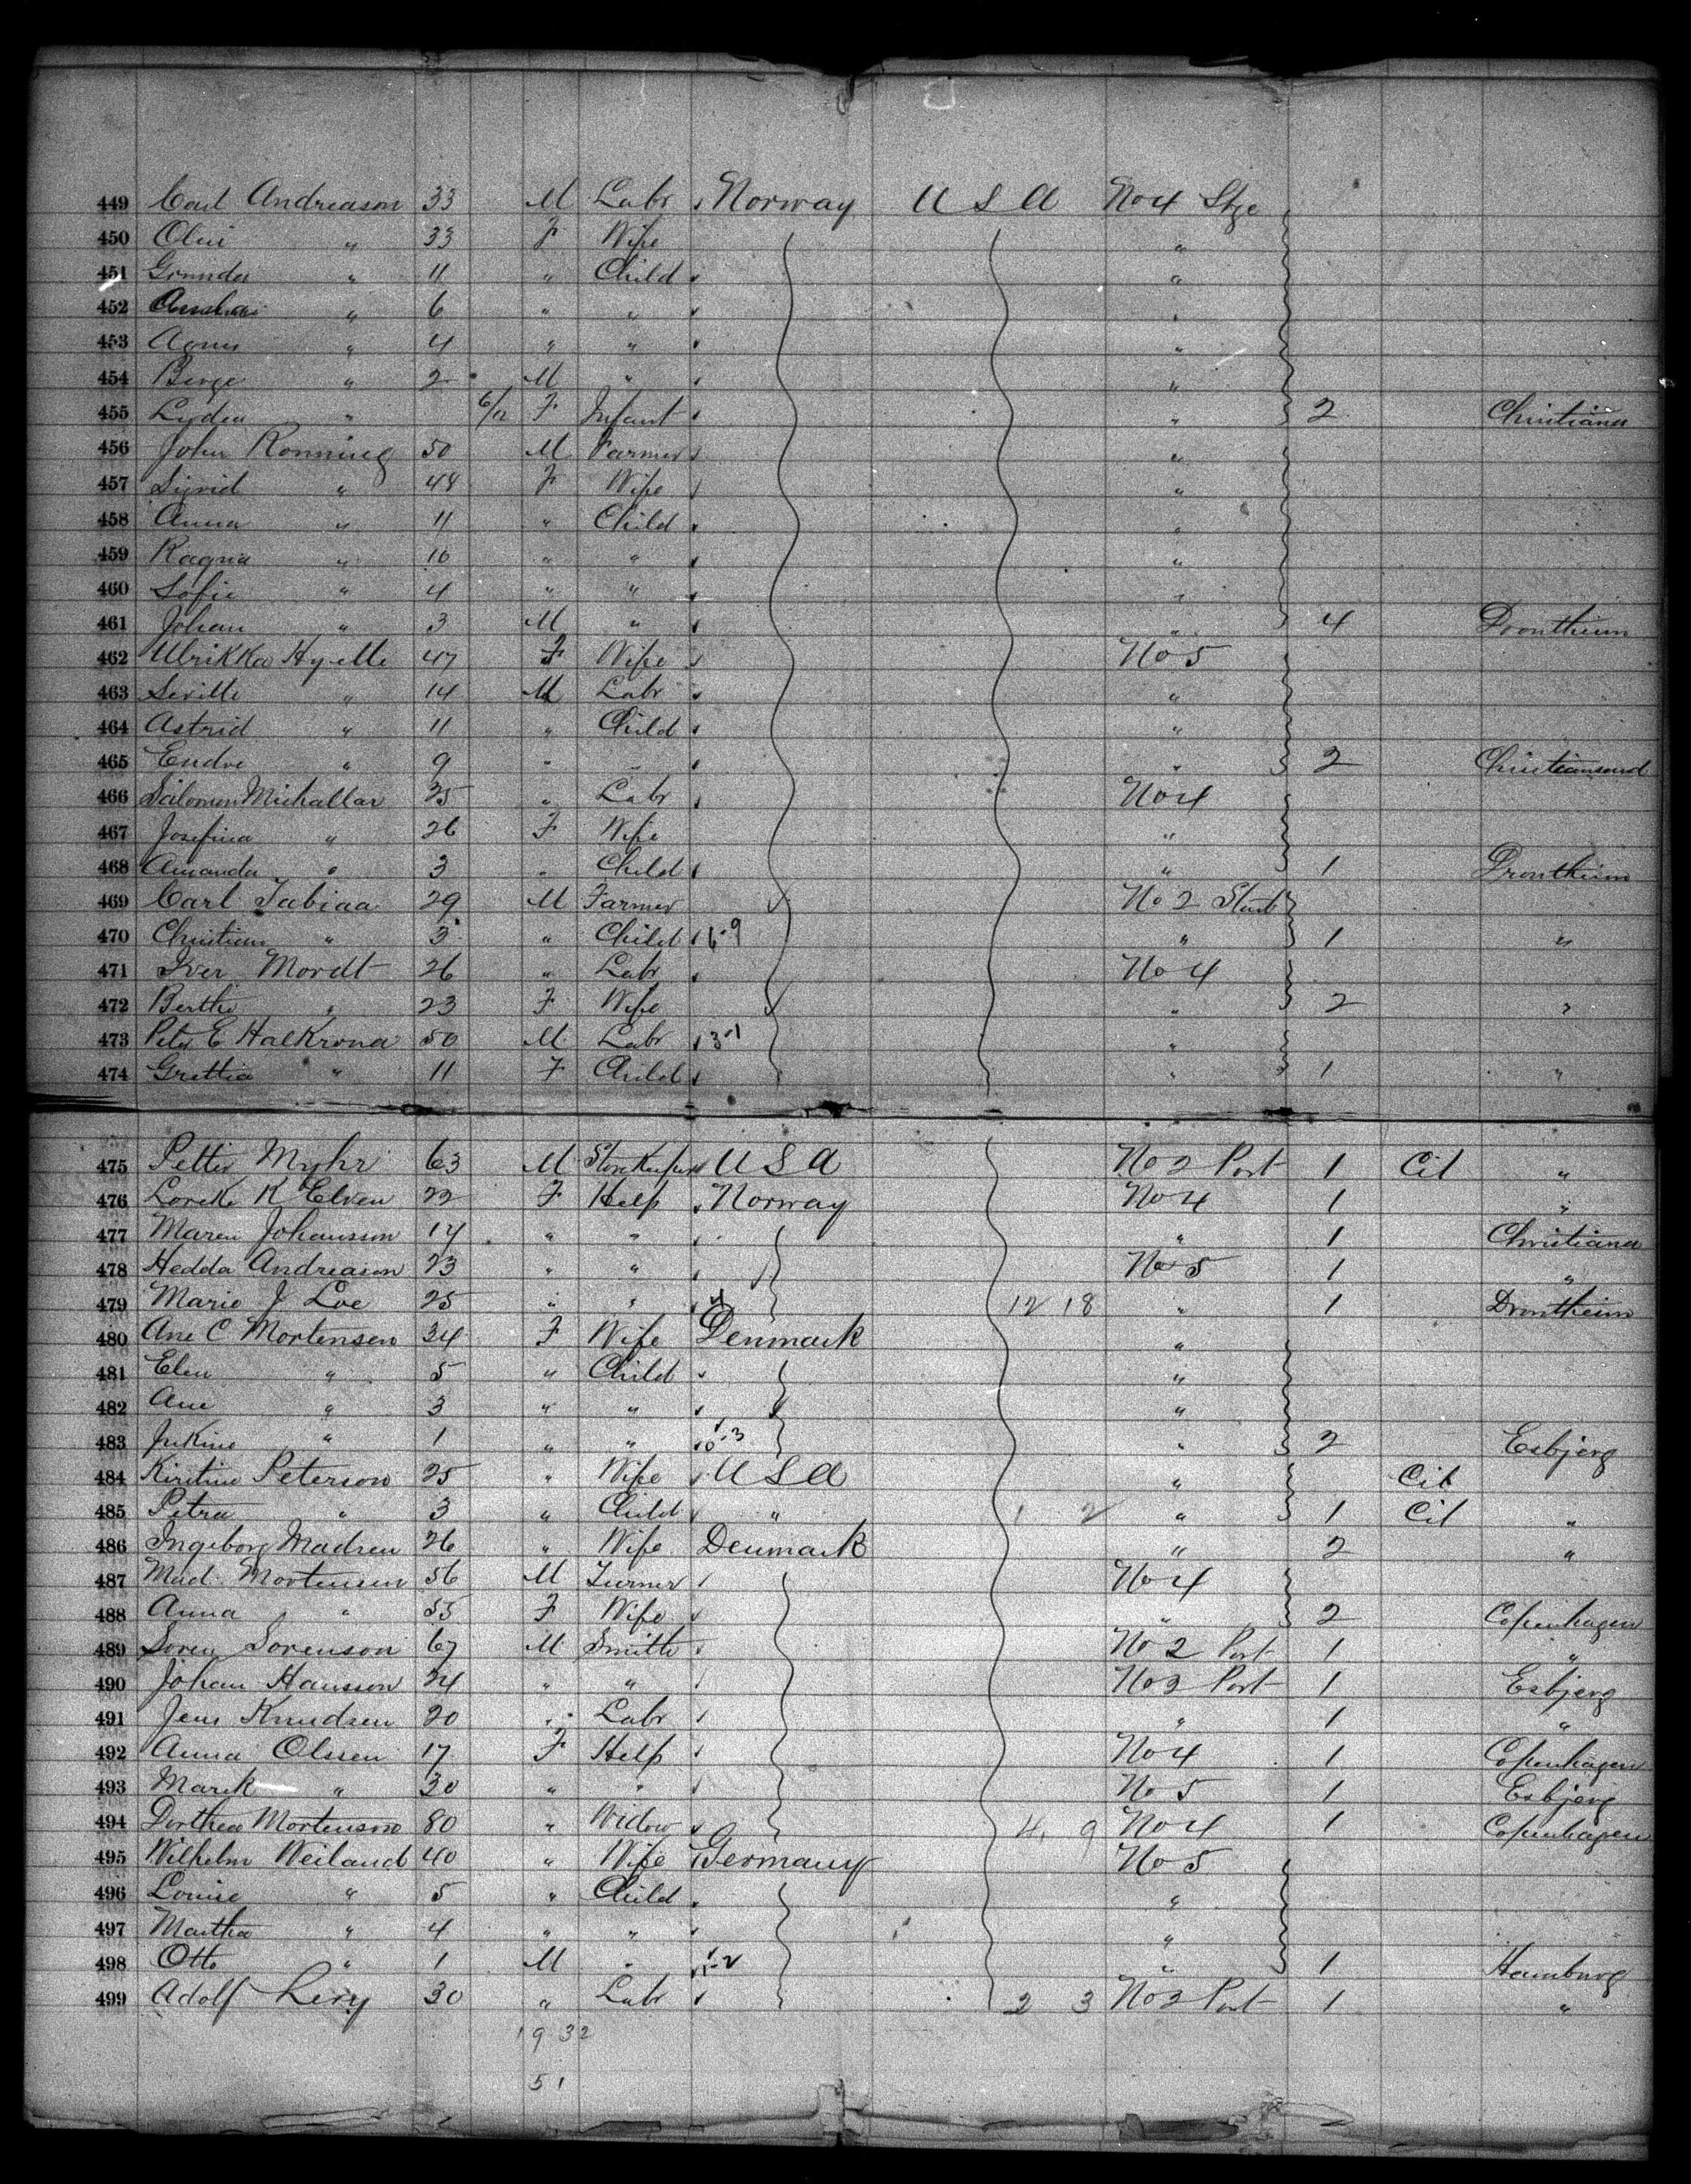 449 Carl Andreason 33 M Labr Norway U S A No 4 Stge
450 Olin " 33 F Wife "
451 " 11 " Child "
452 " 6 " " "
453 Agnes " 4 " " "
454 Berge " 2 M " "
455 Lydia " 6/12 F Infant " 2 Christiana
456 John Ronning 50 M Farmer "
457 Sigrid " 48 F Wife "
458 Anna " 11 " Child "
459 Ragna " 10 " " "
460 Sofie " 4 " " "
461 Johan " 3 M " " 4 Drontheim
462 Ulrikka Hyelle 47 F Wife No 5
463 " 14 M Labr "
464 Astrid " 11 " Child "
465 Endre " 9 " " " 2 Christiansand
466 Salomon Michallar 25 " Labr No 4
467 Josefina " 26 F Wife "
468 Amanda " 3 " Child " 1 Drontheim
469 Carl Tabiaa 29 M Farmer No 2
470 Christian " 3 " Child 6-9 " 1 "
471 Iver Mordt 26 " Labr No 4
472 Berthe " 23 F Wife " 2 "
473 Peter E HalKrona 50 M Labr 3-1 "
474 Grettia " 11 F Child " 1 "
475 Petter Myhr 63 M StoreKeeper U S A No 2 Port 1 Cit "
476 K Elven 22 F Help Norway No 4 1 "
477 Maren Johansson 14 " " " 1 Christiana
478 Hedda Andreason 23 " " No 5 1 "
479 Marie J Loe 25 " " 12 18 " 1 Drontheim
480 Ane C Mortensen 34 F Wife Denmark "
481 Elen " 5 " Child "
482 Ane " 3 " " "
483 " 1 " " 1-3 " 2 Esbjerg
484 Kirstine Peterson 25 " Wife U S A " Cit
485 Petra " 3 " Child " 1 2 " 1 Cit "
486 Ingeborg Madsen 26 " Wife Denmark " 2 "
487 Mad. Mortensen 56 M Turner No 4
488 Anna " 55 F Wife " 2 Copenhagen
489 Soren Sorenson 67 M Smith No 2 Port 1 "
490 Johan Hansson 24 " " No 2 Port 1 Esbjerg
491 Jens Knudsen 20 " Labr " 1 "
492 Anna Olssen 17 F Help No 4 1 Copenhagen
493 Marek " 30 " " No 5 1 Esbjerg
494 Dorthea Mortenson 80 " Widow 4 9 No 4 1 Copenhagen
495 Wilhelm Weiland 40 " Wife Germany No 5
496 Louise " 5 " Child "
497 Martha " 4 " " "
498 Otto " 1 M " 1-2 " 1 Hamburg
499 Adolf Levy 30 " Labr 2 3 No 2 Port 1 "
19 32
51